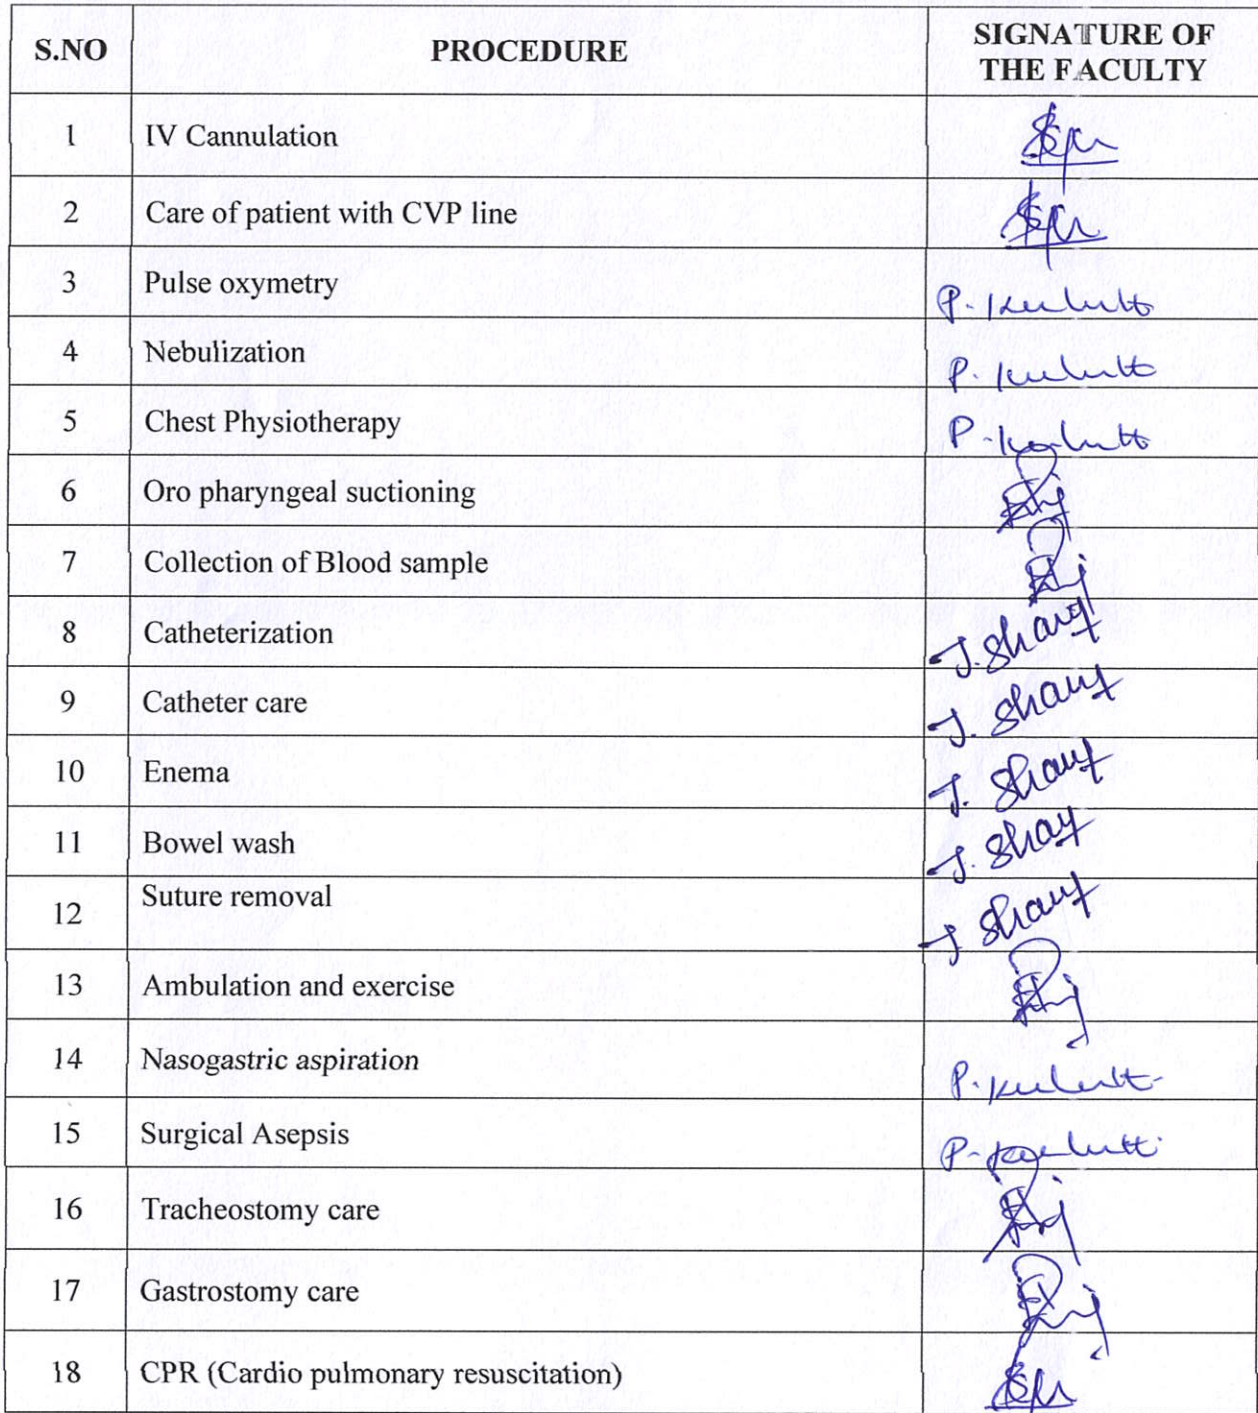 S.NO PROCEDURE SIGNATURE OF
THE FACULTY
1 IV Cannulation
2 Care of patient with CVP line
3 Pulse oxymetry P.
4 Nebulization P.
5 Chest Physiotherapy P.
6 Oro pharyngeal suctioning
7 Collection of Blood sample
8 Catheterization J.
9 Catheter care J.
10 Enema J.
11 Bowel wash J.
12 Suture removal J
13 Ambulation and exercise
14 Nasogastric aspiration P.
15 Surgical Asepsis P.
16 Tracheostomy care
17 Gastrostomy care
18 CPR (Cardio pulmonary resuscitation)